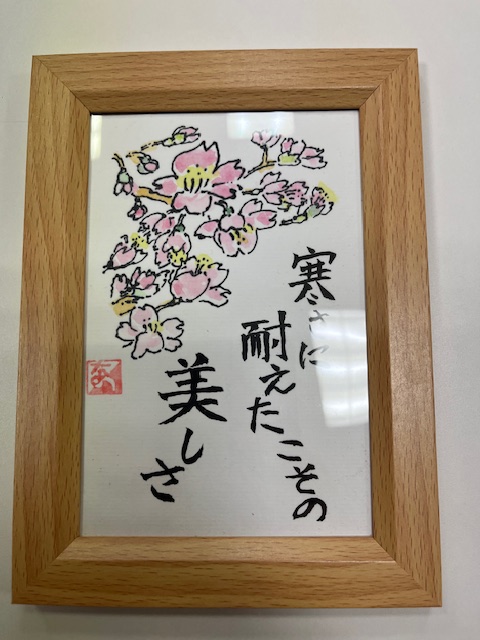 寒さに
耐えたこその
美しさ